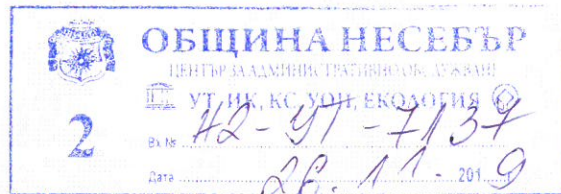 ОБЩИНА НЕСЕБЪР
ЦЕНТЪР ЗА АДМИНИСТРАТИВНО ОБСЛУЖВАНЕ
УТ, ИК, КС, УОИ, ЕКОЛОГИЯ
2
Вх. № Н2-УТ-7137
Дата 26.11. 2019